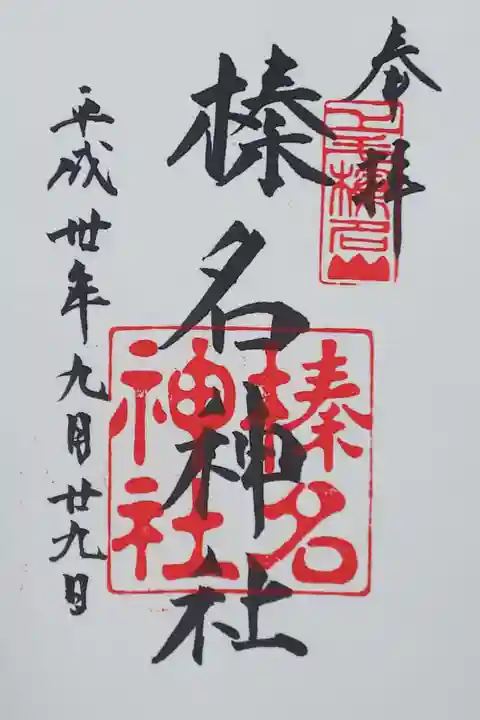 奉拝
榛名神社
平成卅年九月廿九日
榛名
神社